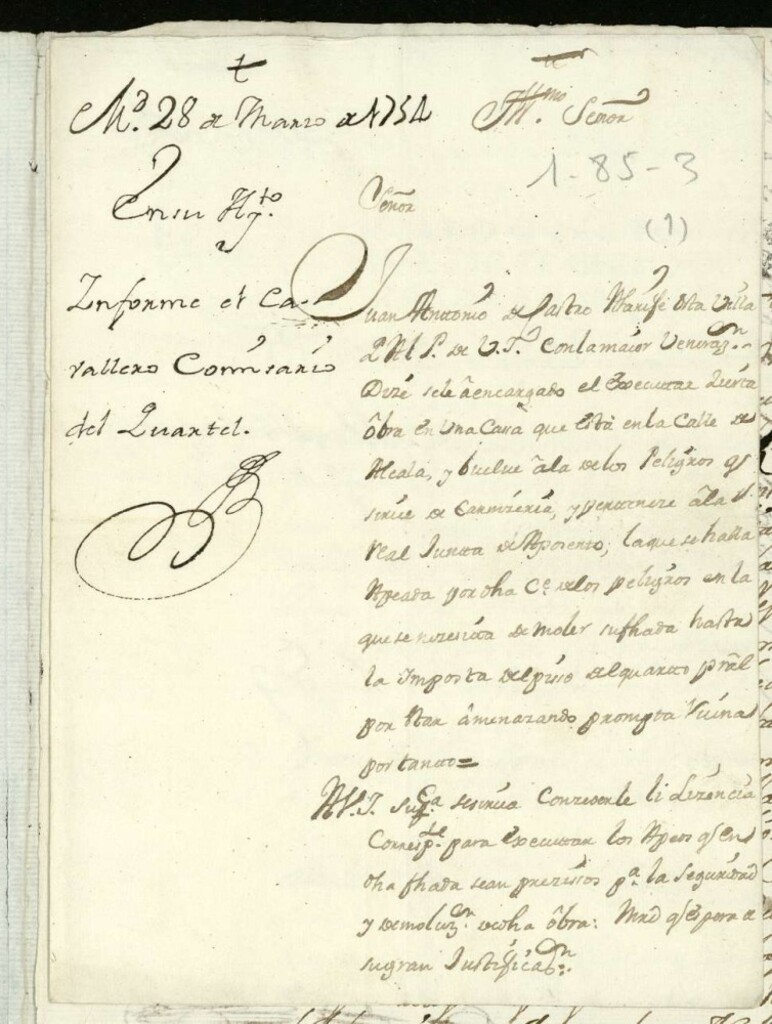 M.d 28 de Marzo de 1754
En su Ay.to
Informe el Ca-
vallero Comisario
del Quartel.
Ill.mo Señor
1-85-3
(1)
Señor
Juan Antonio de Castro Alarife desta Villa
A L P. de V. I. con la maior Veneraz.on
Dize se le â encargado el executar zierta
ôbra en una Casa que està en la Calle de
Alcala, y buelue â la de los Peligros q
sirue de Carnizeria, y perteneze â la R.
real Junta de Aposento, la que se halla
Apeada por dha C.e de los peligros en la
que se nezesita demoler su fhada hasta
la Imposta del piso del quarto prâl
por estar âmenazando prompta Ruina
por tanto=
A V. I. sup.ca se sirua Conzederle li Lizencia
Corresp.te para executar los Apeos q en
dha fhada sean prezisos p.a la Seguridad
y demoliz.on de dha ôbra: Mrd q espera de
su gran Justificaz.on